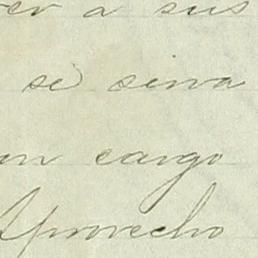 er a sus
se sirva
un cargo
Aprovecho